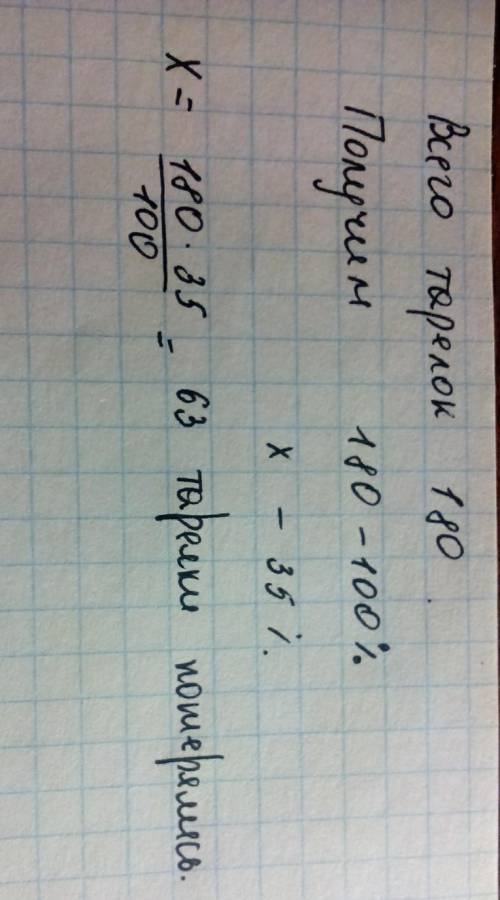 Всего тарелок 180.
Получим 180 - 100%
x - 35%.
X = 180 · 35 / 100 = 63 тарелки потерялись.